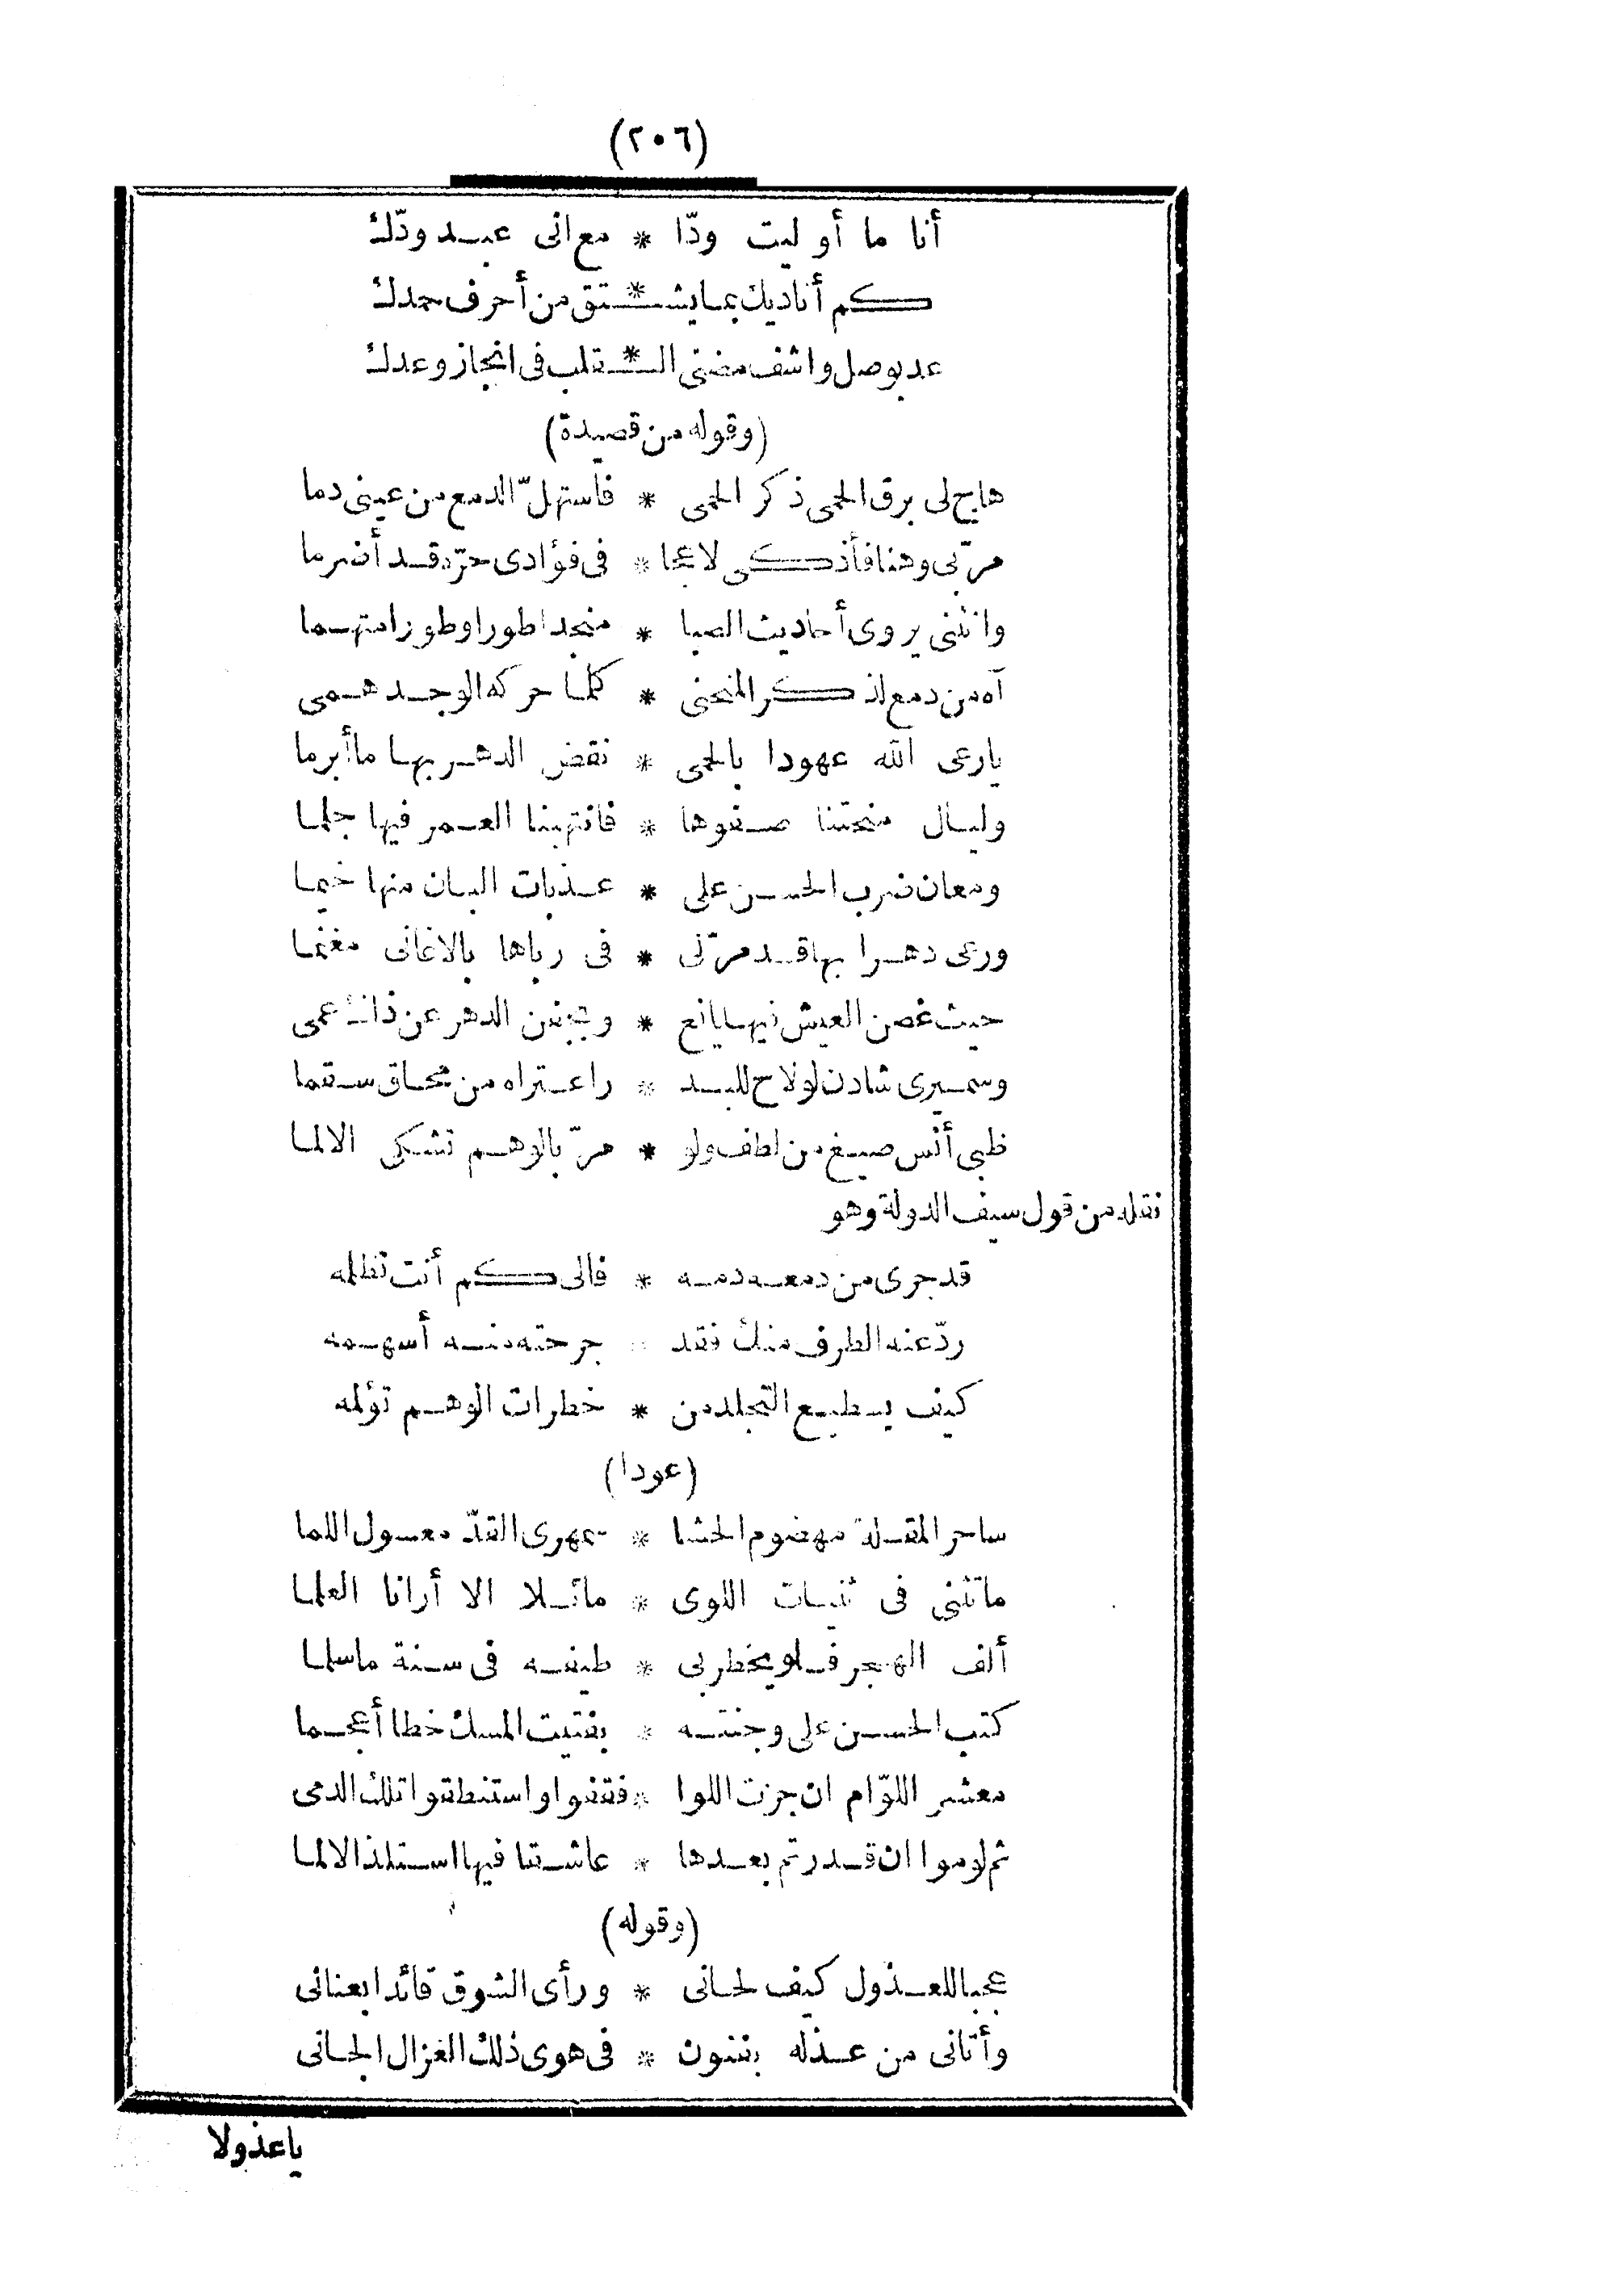 (٢٠٦)
أنا ما أوليت ودّا * مع انى عبد ودّك
كم أناديك بما يشـ * ـتق من أحرف حمدك
عد بوصل واشف مضنى الـ * ـقلب فى انجاز وعدك
(وقوله من قصيدة)
هاج لى برق الحمى ذكر الحمى * فاستهلّ الدمع من عينى دما
مرّ بى وهنا فأذكى لاعجا * فى فؤادى حرّه قد أضرما
وانثنى يروى أحاديث الصبا * منجدا طورا وطورا متهما
آه من دمع لذكر المنحنى * كلما حركه الوجد همى
يارعى الله عهودا بالحمى * نقض الدهر بها ما أبرما
وليال منحتنا صفوها * فانتهبنا العمر فيها حلما
ومعان ضرب الحسن على * عذبات البان منها خيما
ورعى دهرا بها قد مرّ لى * فى رباها بالاغانى مغنما
حيث غصن العيش فيها يانع * وجفون الدهر عن ذاك عمى
وسميرى شادن لو لاح للبد * ر اعتراه من محاق سقما
ظبى أنس صيغ من لطف ولو * مرّ بالوهم تشكى الالما
نقله من قول سيف الدولة وهو
قد جرى من دمعه دمه * فالى كم أنت تظلمه
ردّ عنه الطرف منك فقد * جرحته منه أسهمه
كيف يسطيع التجلد من * خطرات الوهم تؤلمه
(عودا)
ساحر المقلة مهضوم الحشا * سمهرى القدّ معسول اللما
ما تثنى فى ثنيات اللوى * مائلا الا أرانا العلما
ألف الهجر فلو يخطر بى * طيفه فى سنة ما سلما
كتب الحسن على وجنته * بفتيت المسك خطا أعجما
معشر اللوّام ان جزت اللوا * فقفوا واستنطقوا تلك الدمى
ثم لوموا ان قدرتم بعدها * عاشقا فيها استلذ الالما
(وقوله)
عجبا للعذول كيف لحانى * ورأى الشوق قائدا بعنانى
وأتانى من عذله بفنون * فى هوى ذلك الغزال الجانى
ياعذولا